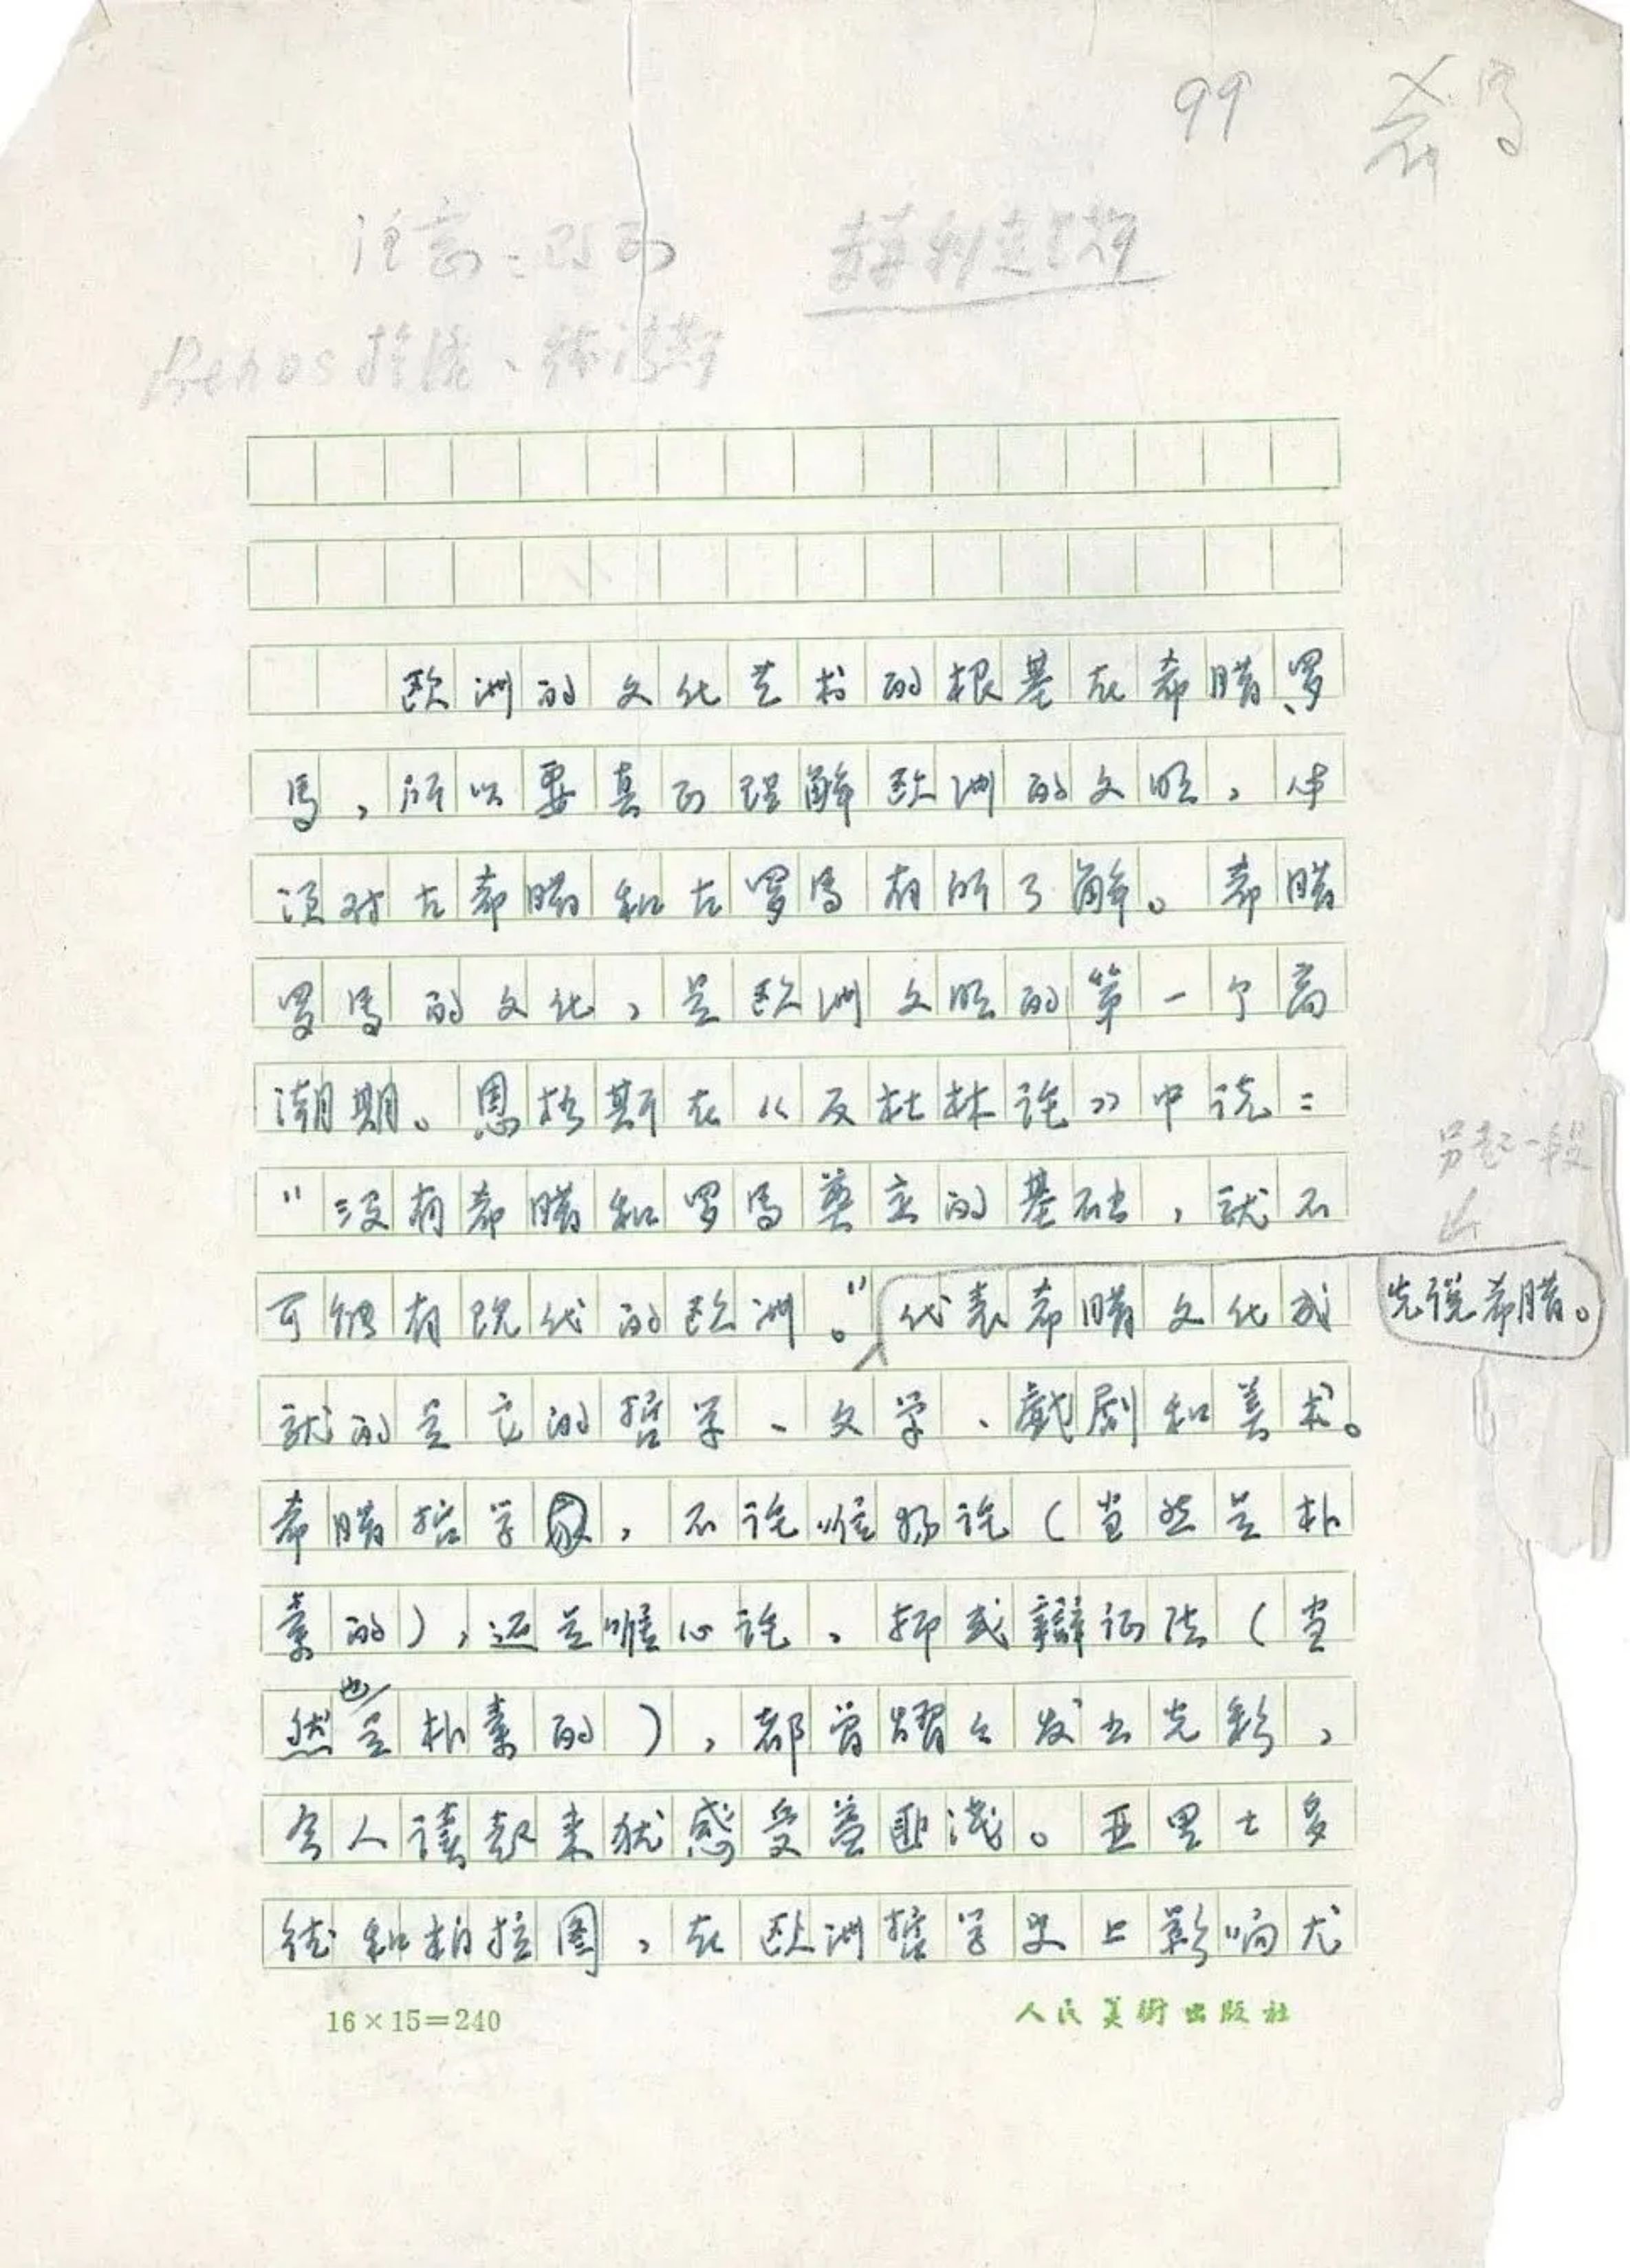 99
欧洲的文化艺术的根基在希腊、罗
马，所以要真正理解欧洲的文明，必
须对古希腊和古罗马有所了解。希腊
罗马的文化，是欧洲文明的第一个高
潮期。恩格斯在《反杜林论》中说：
“没有希腊和罗马奠立的基础，就不
另起一段
可能有现代的欧洲。”代表希腊文化成
先说希腊。
就的是它的哲学、文学、戏剧和美术。
希腊哲学家，不论唯物论（当然是朴
素的），还是唯心论，抑或辩证法（当
也
然是朴素的），都曾耀々发出光彩，
令人读起来犹感受益匪浅。亚里士多
德和柏拉图，在欧洲哲学史上影响尤
16×15=240
人民美術出版社